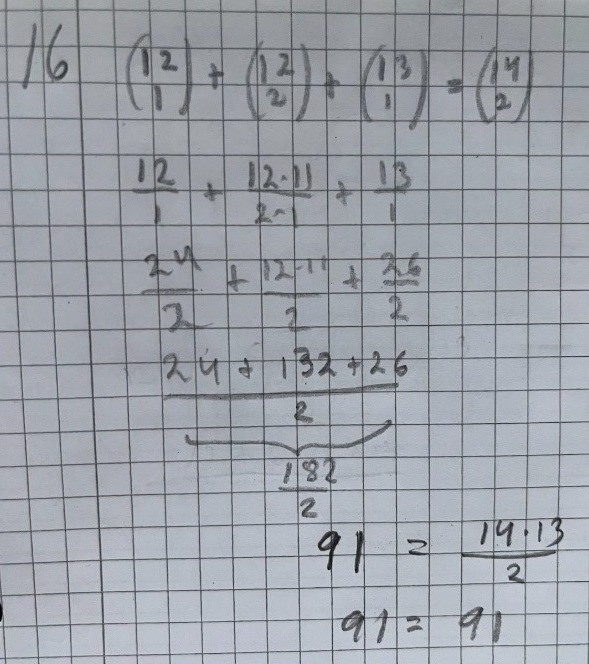 16 (12 1) + (12 2) + (13 1) = (14 2)
12/1 + 12·11/2·1 + 13/1
24/2 + 12·11/2 + 26/2
24 + 132 + 26/2
182/2
91 = 14·13/2
91 = 91